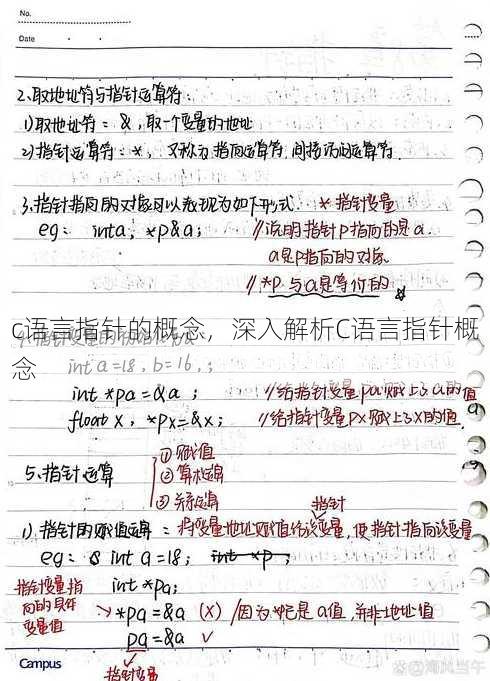 No.
Date
2、取地址符与指针运算符:
1)取地址符: &,取一个变量的地址
2)指针运算符: *, 又称为指向运算符,间接访问运算符.
3.指针指向的对象可以表现为如下形式. *指针变量
eg: int a, *p=&a; //说明指针p指向的是a.
a是p指向的对象.
//.*p 与a是等价的.
c语言指针的概念，深入解析C语言指针概
念
int a=18, b=16,;
int *pa=&a; //给指针变量pa赋上了a的值
float x, *px=&x; //给指针变量px赋上了x的值.
5、指针运算
①赋值
②算术运算
③关系运算
指针
1). 指针的赋值运算: 将变量地址赋值给该变量,使指针指向该变量
eg: int a=18; int *p;
指针变量指
向的具体
变量值
int *pa;
*pa=&a (X) /因为 *pa是a值,并非地址值
pa=&a √
指针变量
Campus
@海风当午